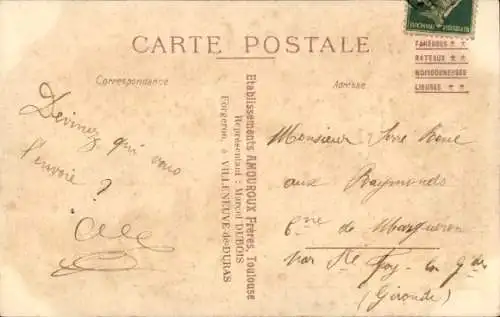 CARTE POSTALE
Correspondance
Adresse
FANEUSES ★ ★
RATEAUX ★ ★
MOISSONNEUSES
LIEUSES ★ ★
Devinez qui vous
l'envoie ?
Etablissements AMOUROUX Frères, Toulouse
Représentant : Marcel DUBOIS
Forgeron, à VILLENEUVE-de-DURAS
Monsieur Serre René
aux Raymonds
Cne de Margueron
par Ste Foy-la-Gde
(Gironde)